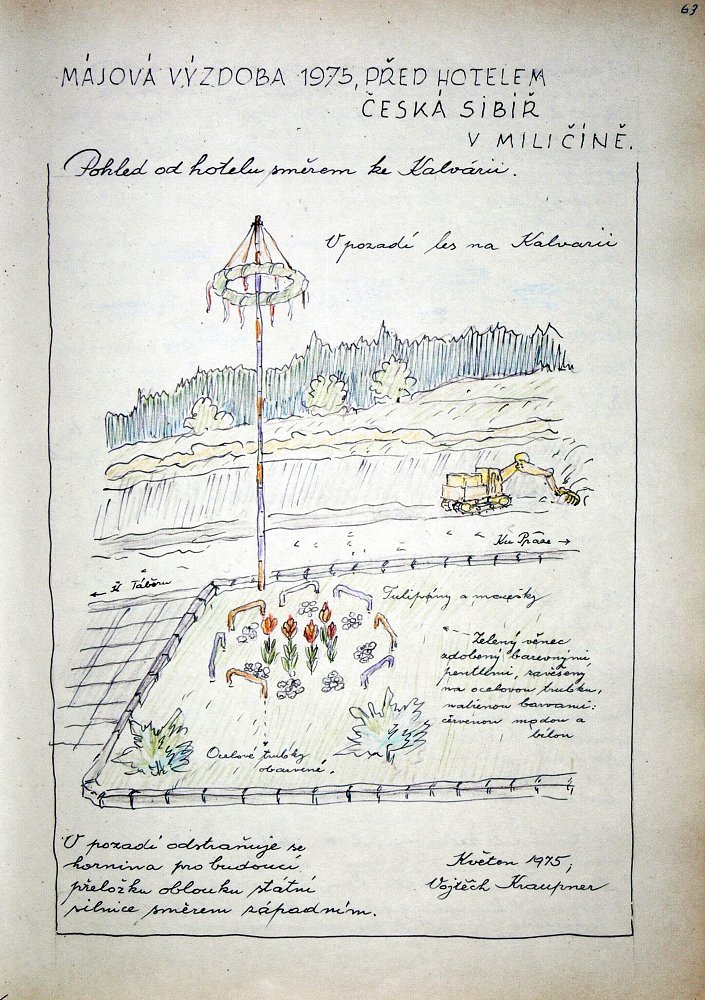 63
MÁJOVÁ VÝZDOBA 1975, PŘED HOTELEM
ČESKÁ SIBIŘ
V MILIČÍNĚ.
Pohled od hotelu směrem ke Kalvárii.
V pozadí les na Kalvarii
Ku Praze →
← K Táboru
Tulipány a macešky
Zelený věnec
zdobený barevnými
pentlemi, zavěšený
na ocelovou trubku,
natřenou barvami:
červenou modou a
bílou
Ocelové trubky
obarvené.
V pozadí odstraňuje se
hornina pro budoucí
přeložku oblouku státní
silnice směrem západním.
Květen 1975,
Vojtěch Kraupner